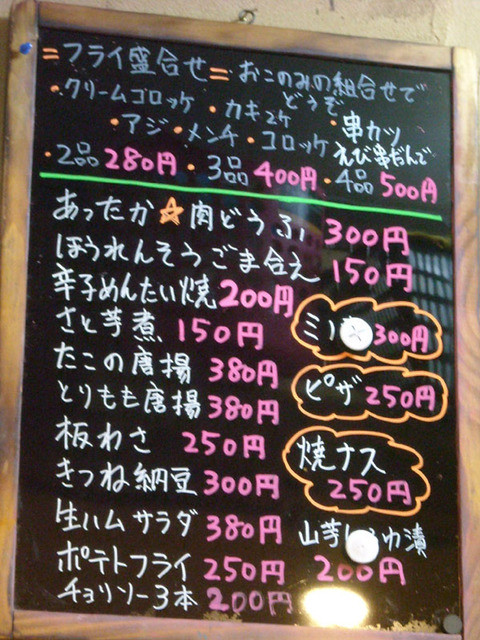 =フライ盛合せ= おこのみの組合せで
どうぞ
・クリームコロッケ ・カキ2ケ
・アジ ・メンチ ・コロッケ ・串カツ
えび串だんご
・2品280円 ・3品400円 ・4品500円
あったか☆肉どうふ 300円
ほうれんそうごま合え 150円
辛子めんたい焼 200円
さと芋煮 150円
ミノ 300円
たこの唐揚 380円
ピザ 250円
とりもも唐揚 380円
板わさ 250円
焼ナス
250円
きつね納豆 300円
生ハムサラダ 380円
山芋 漬
200円
ポテトフライ 250円
チョリソー3本 200円